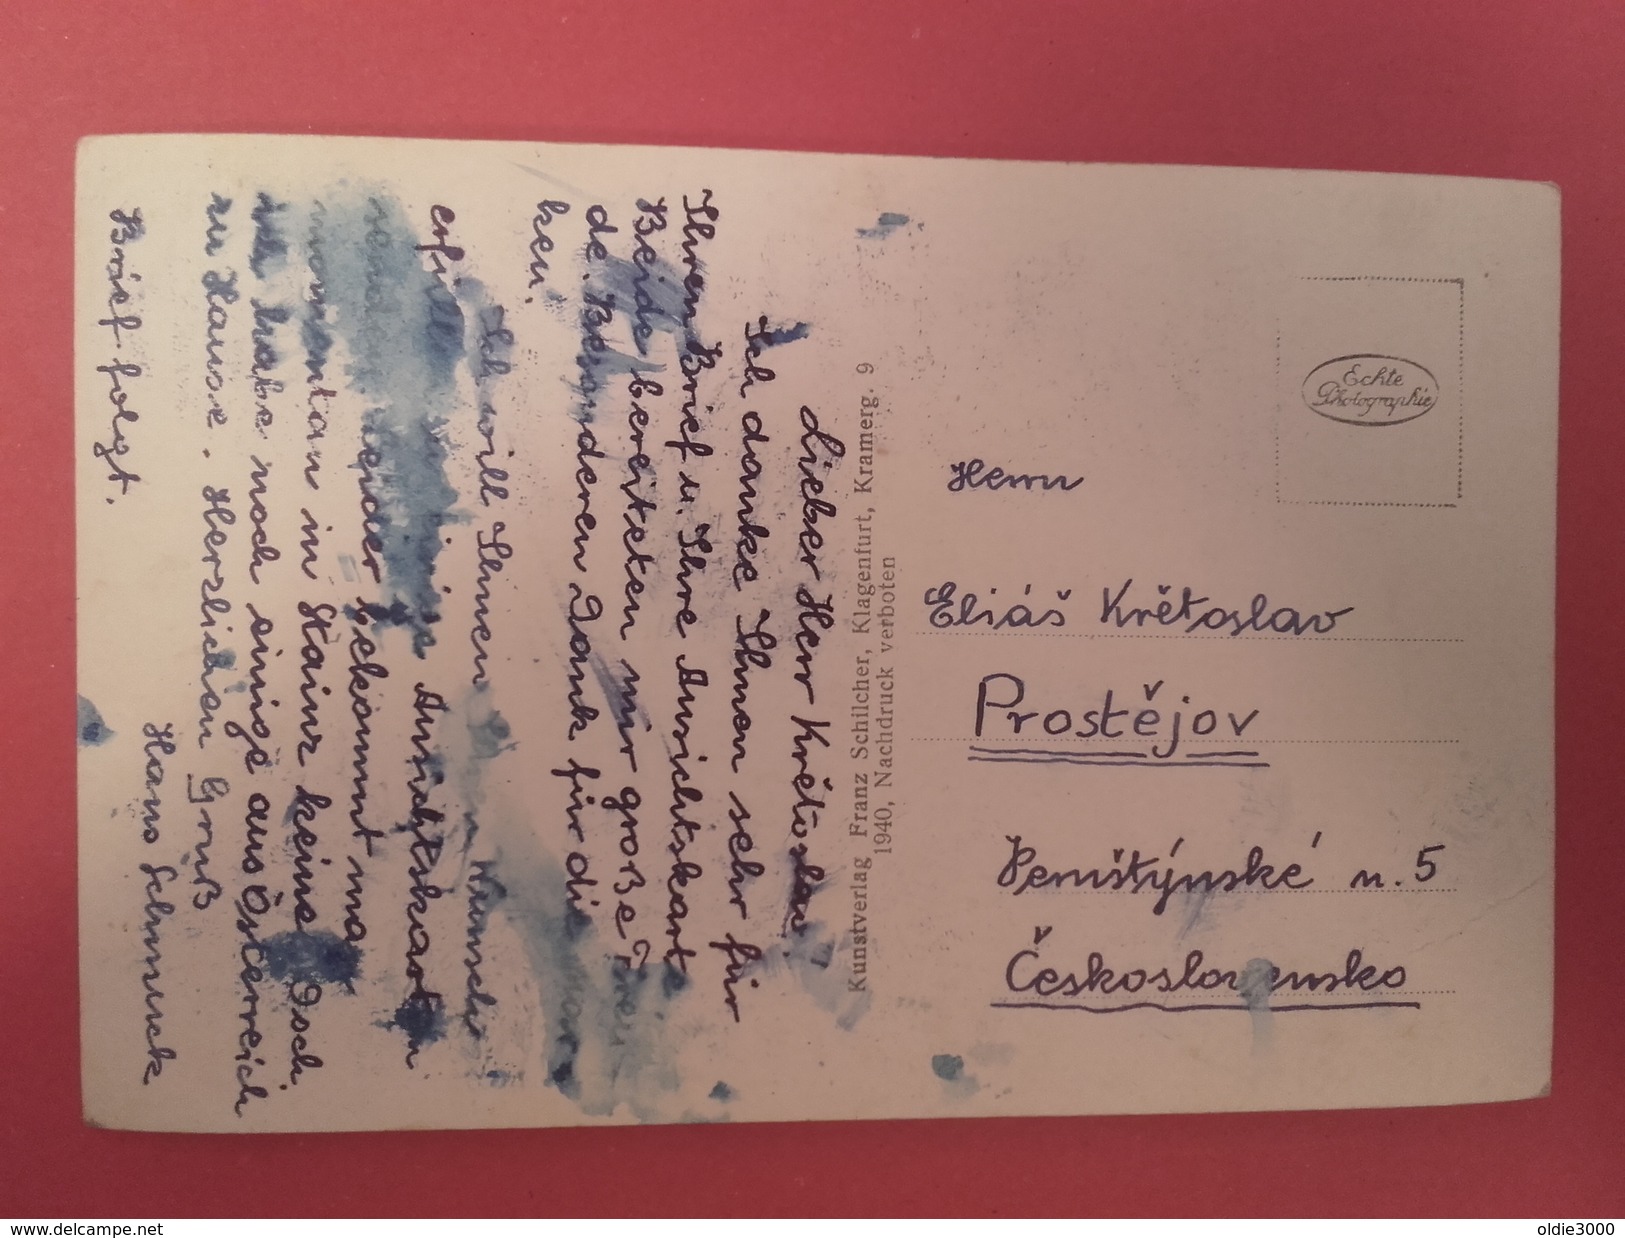 Lieber Herr Květoslav!
Ich danke Ihnen sehr für
Ihren Brief u. Ihre Ansichtskarte
Beide bereiteten mir große Freu
de. Besonderen Dank für die Mar
ken.
Ich will Ihnen Wunsch
erfüllen Ansichtskarten
senden. Leider bekommt man
momentan in Stainz keine. Doch
ich habe noch einige aus Österreich
zu Hause. Herzlichen Gruß
Hans Schmuck
Brief folgt.
Kunstverlag Franz Schilcher, Klagenfurt, Kramerg. 9
1940, Nachdruck verboten
Echte
Photographie
Herrn
Eliáš Květoslav
Prostějov
n. 5
Československo
www.delcampe.net
oldie3000